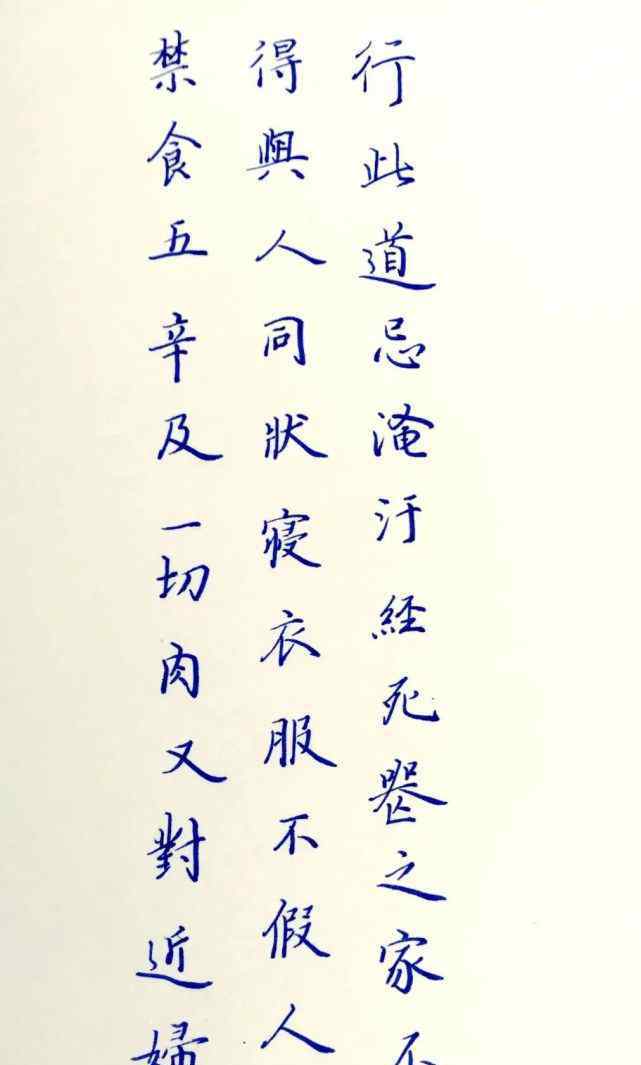 行此道忌淹汙經死喪之家不
得與人同狀寑衣服不假人
禁食五辛及一切肉又對近婦